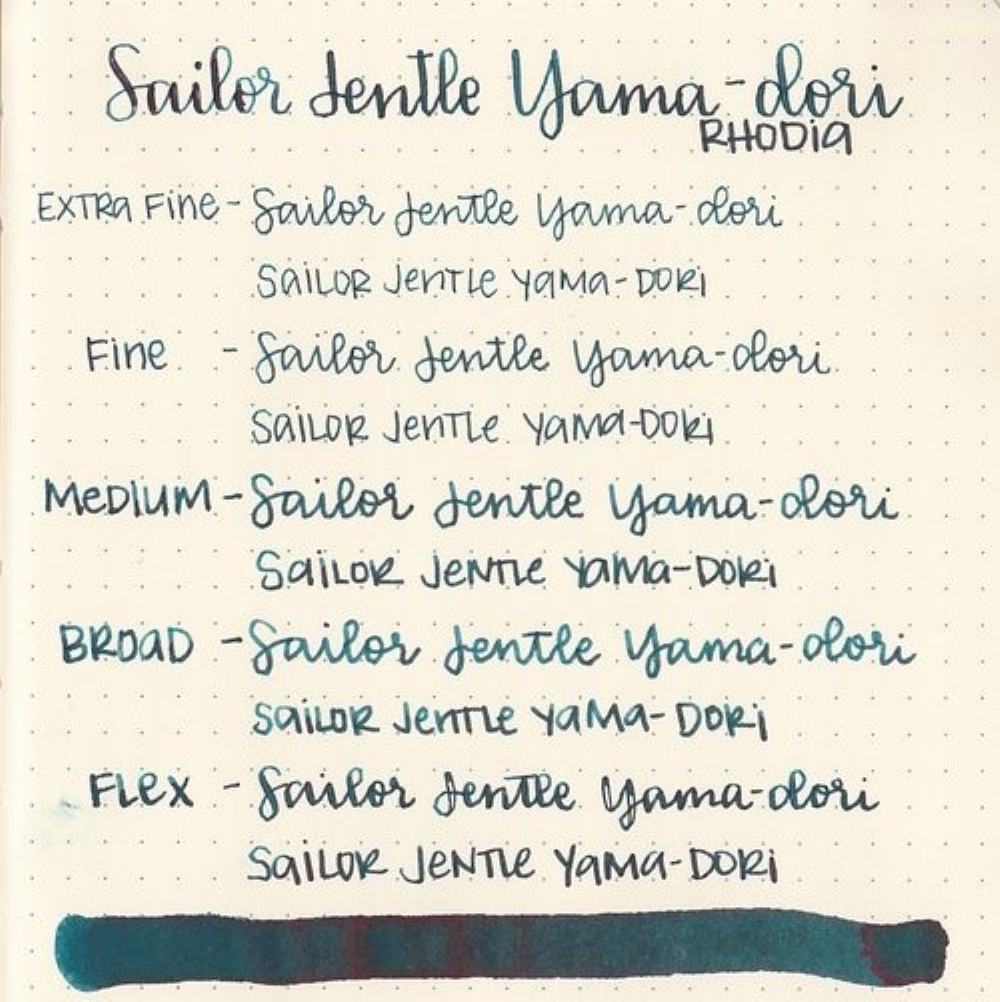 Sailor Jentle Yama-dori
RHODIA
EXTRA FINE - Sailor Jentle Yama-dori
SAILOR JENTLE YAMA-DORI
FINE - Sailor Jentle Yama-dori
SAILOR JENTLE YAMA-DORI
MEDIUM - Sailor Jentle Yama-dori
SAILOR JENTLE YAMA-DORI
BROAD - Sailor Jentle Yama-dori
SAILOR JENTLE YAMA-DORI
FLEX - Sailor Jentle Yama-dori
SAILOR JENTLE YAMA-DORI